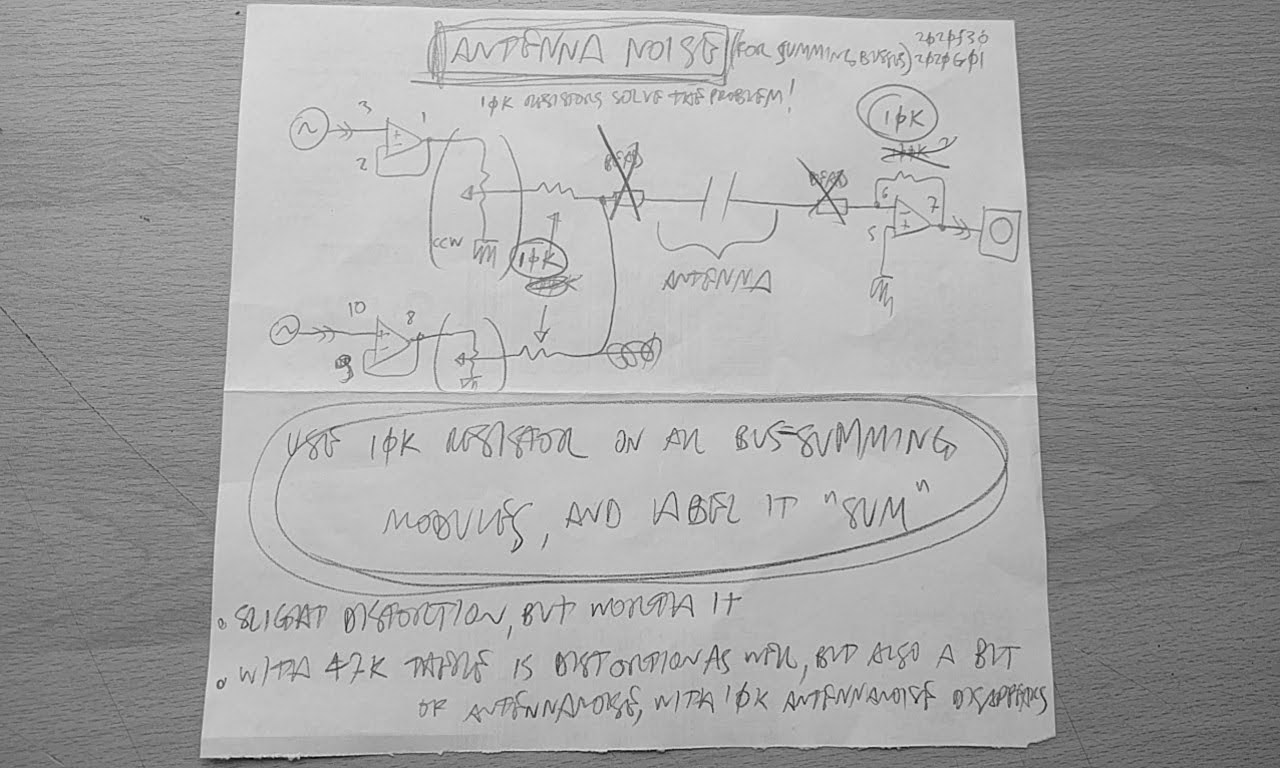 ANTENNA NOISE (FOR SUMMING BUSSES)
2020G01
10K RESISTORS SOLVE THE PROBLEM!
10K
3
1
2
BEAD
BEAD
6
7
5
CCW
10K
ANTENNA
10
8
9
USE 10K RESISTOR ON ALL BUS-SUMMING
MODULES, AND LABEL IT "SUM"
• SLIGHT DISTORTION, BUT WORTH IT
• WITH 47K THERE IS DISTORTION AS WELL, BUT ALSO A BIT
OF ANTENNANOISE, WITH 10K ANTENNANOISE DISAPPEARS